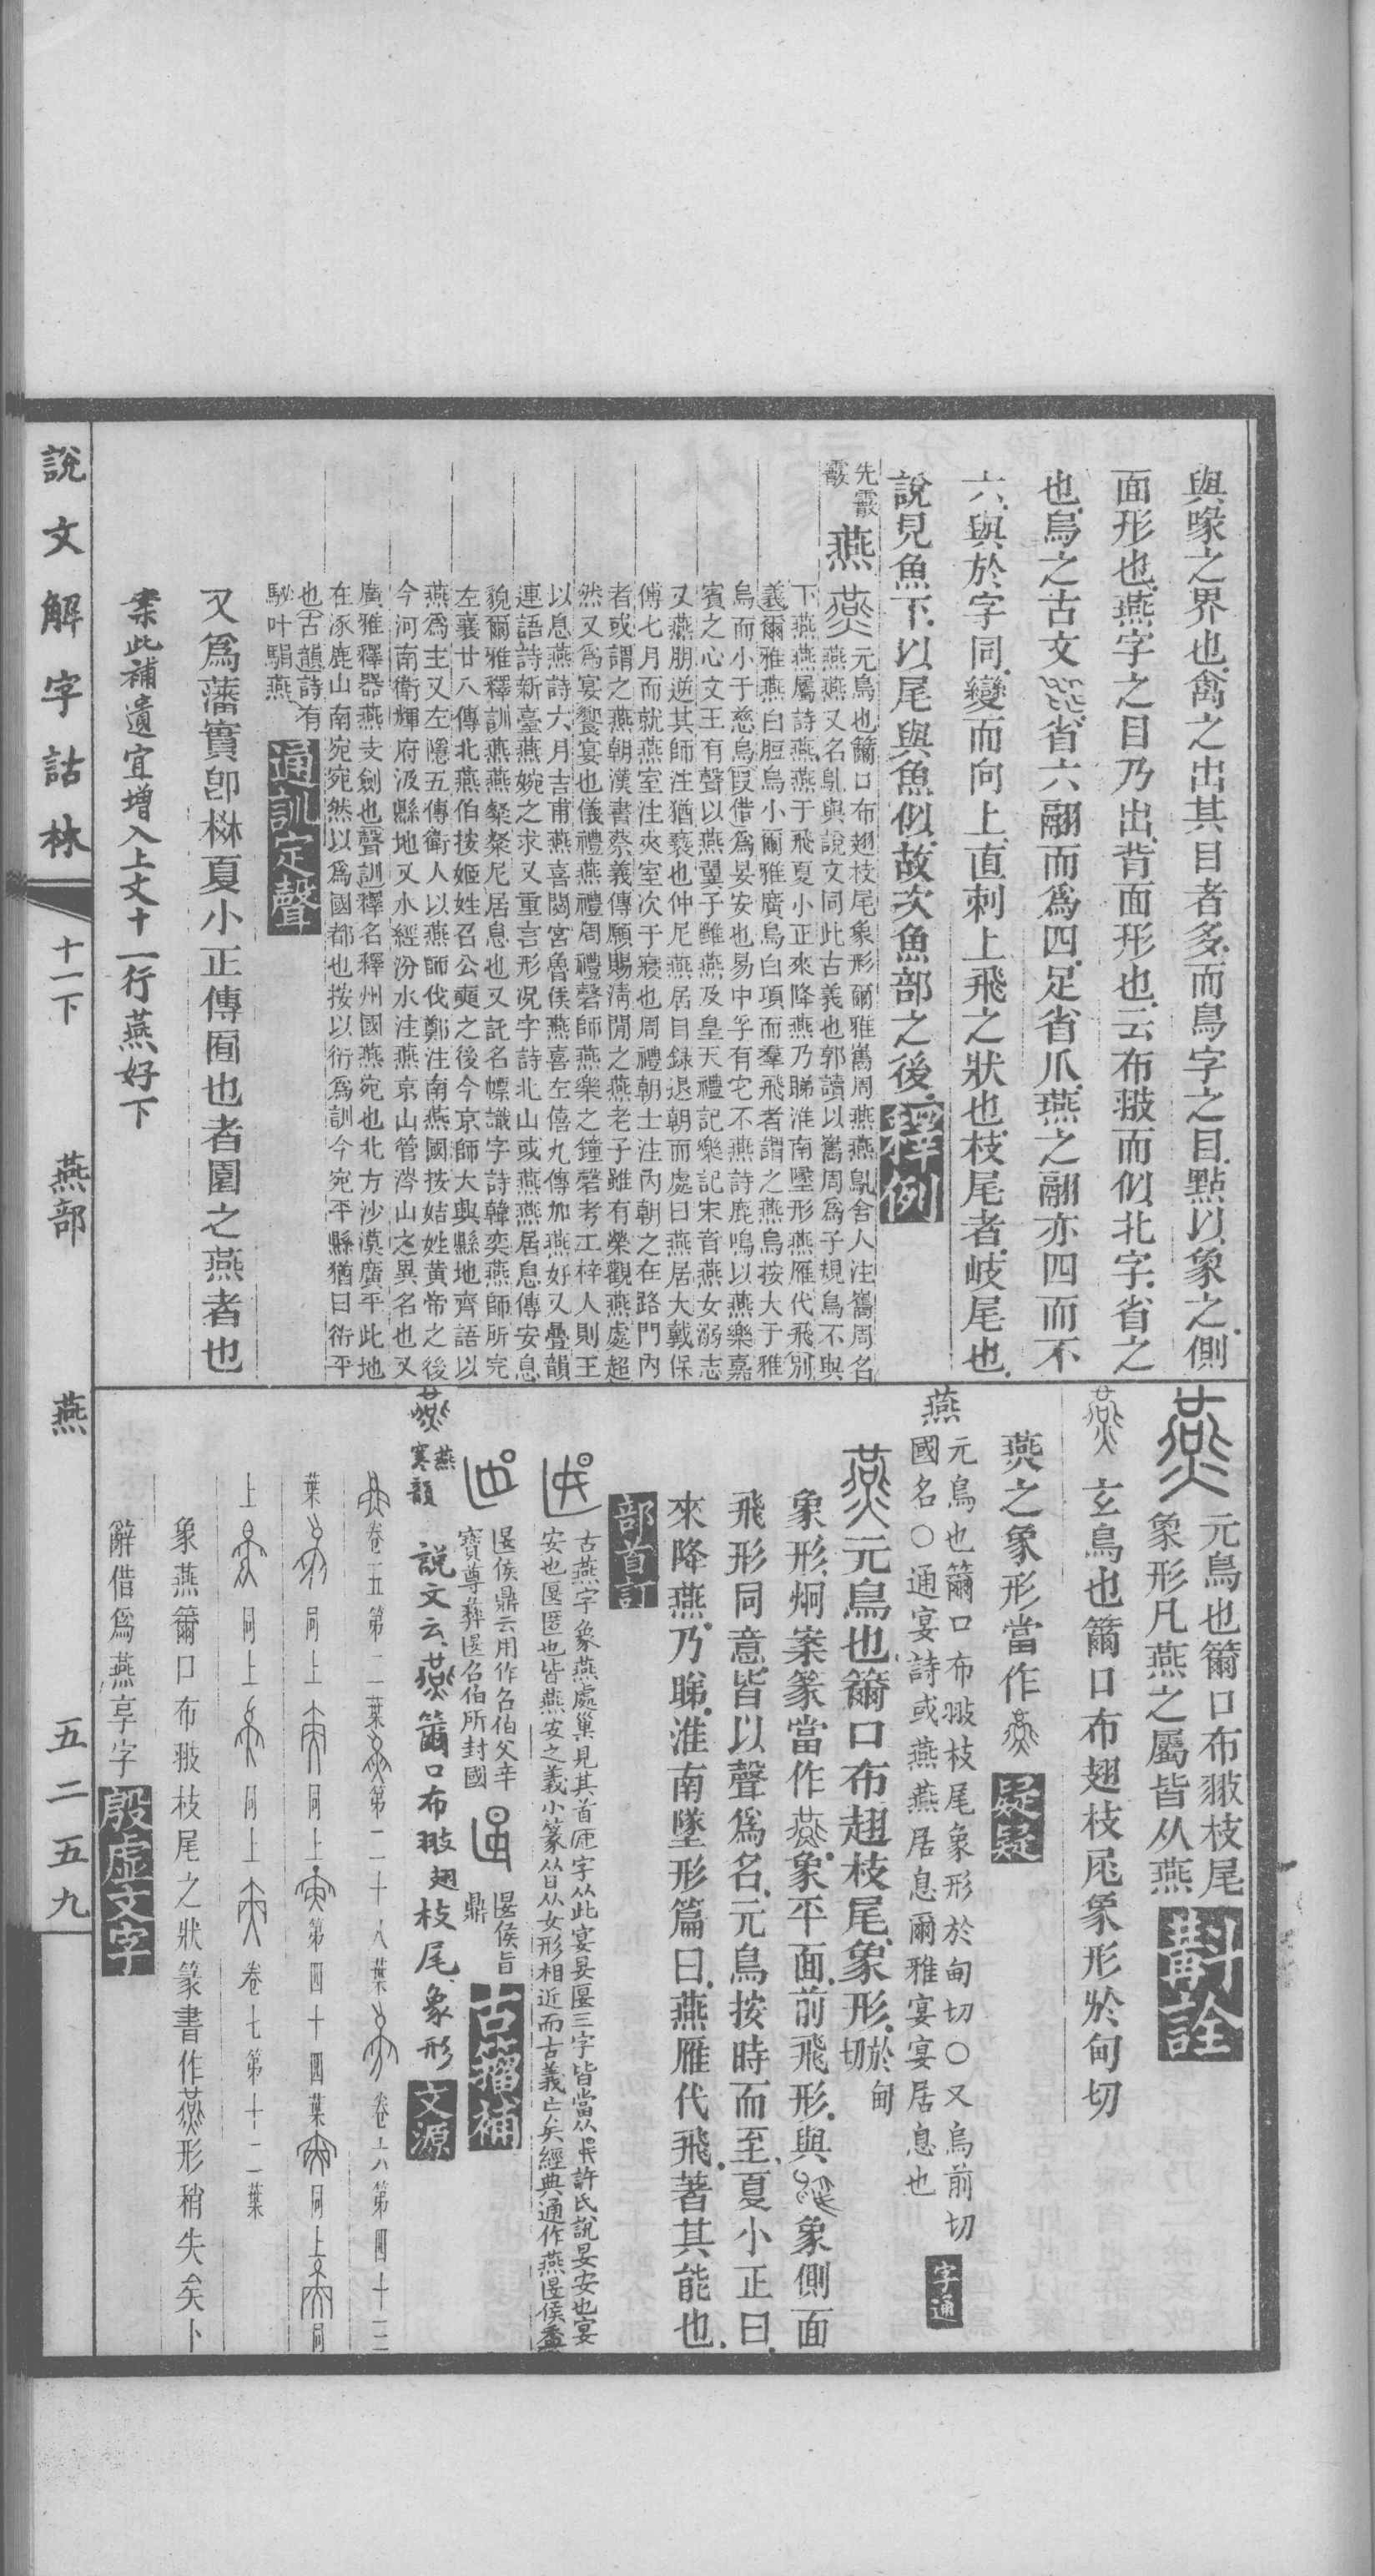 與喙之界也禽之出其目者多而鳥字之目點以象之側
面形也燕字之目乃出背面形也云布翄而似北字省之
也烏之古文省六翮而爲四足省爪燕之翮亦四而不
六與於字同變而向上直刺上飛之狀也枝尾者岐尾也
說見魚下以尾與魚似故次魚部之後 釋例
先霰
霰
燕
元鳥也籋口布翅枝尾象形爾雅巂周燕燕鳦舍人注巂周名
燕燕又名鳦與說文同此古義也郭讀以巂周爲子規鳥不與
下燕燕屬詩燕燕于飛夏小正來降燕乃睇淮南墬形燕雁代飛別
義爾雅燕白脰烏小爾雅廣烏白項而羣飛者謂之燕烏按大于雅
烏而小于慈烏叚借爲宴安也易中孚有它不燕詩鹿鳴以燕樂嘉
賓之心文王有聲以燕翼子雝燕及皇天禮記樂記宋音燕女溺志
又燕朋逆其師注猶褻也仲尼燕居目録退朝而處曰燕居大戴保
傅七月而就燕室注夾室次于寢也周禮朝士注內朝之在路門內
者或謂之燕朝漢書蔡義傳願賜淸閒之燕老子雖有榮觀燕處超
然又爲宴饗宴也儀禮燕禮周禮磬師燕樂之鐘磬考工梓人則王
以息燕詩六月吉甫燕喜閟宮魯侯燕喜左僖九傳加燕好又疊韻
連語詩新臺燕婉之求又重言形況字詩北山或燕燕居息傳安息
貌爾雅釋訓燕燕粲粲尼居息也又託名幖識字詩韓奕燕師所完
左襄廿八傳北燕伯按姬姓召公奭之後今京師大興縣地齊語以
燕爲主又左隱五傳衛人以燕師伐鄭注南燕國按姞姓黃帝之後
今河南衛輝府汲縣地又水經汾水注燕京山管涔山之異名也又
廣雅釋器燕支劍也聲訓釋名釋州國燕宛也北方沙漠廣平此地
在涿鹿山南宛宛然以爲國都也按以衍爲訓今宛平縣猶曰衍平
也古韻詩有
駜叶駽燕
通訓定聲
又爲藩實卽楙夏小正傳囿也者圍之燕者也
案此補遺宜增入上文十一行燕好下
元鳥也籋口布翄枝尾
象形凡燕之屬皆从燕 斠詮
玄鳥也籋口布翅枝尾象形於甸切
燕之象形當作 疑疑
燕
元鳥也籋口布翄枝尾象形於甸切〇又烏前切
國名〇通宴詩或燕燕居息爾雅宴宴居息也 字通
元鳥也籋口布翅枝尾象形於甸切
象形炯案篆當作象平面前飛形與象側面
飛形同意皆以聲爲名元鳥按時而至夏小正曰
來降燕乃睇淮南墬形篇曰燕雁代飛著其能也
部首訂
古燕字象燕處巢見其首匽字从此宴晏匽三字皆當从許氏說妟安也宴
安也匽匿也皆燕安之義小篆从日从女形相近而古義亡矣經典通作燕匽侯
匽侯鼎云用作召伯父辛
寶尊彝匽召伯所封國
匽侯旨
鼎
古籀補
燕
寒韻
說文云籋口布翄翅枝尾象形 文源
卷二五第二一葉 第二十八葉 卷六第四十三
葉 同上 同上 第四十四葉 同上 同
上 同上 同上 卷七第十二葉
象燕籋口布翄枝尾之狀篆書作形稍失矣卜
辭借爲燕享字 殷虛文字
說文解字詁林 十一下 燕部 燕 五二五九